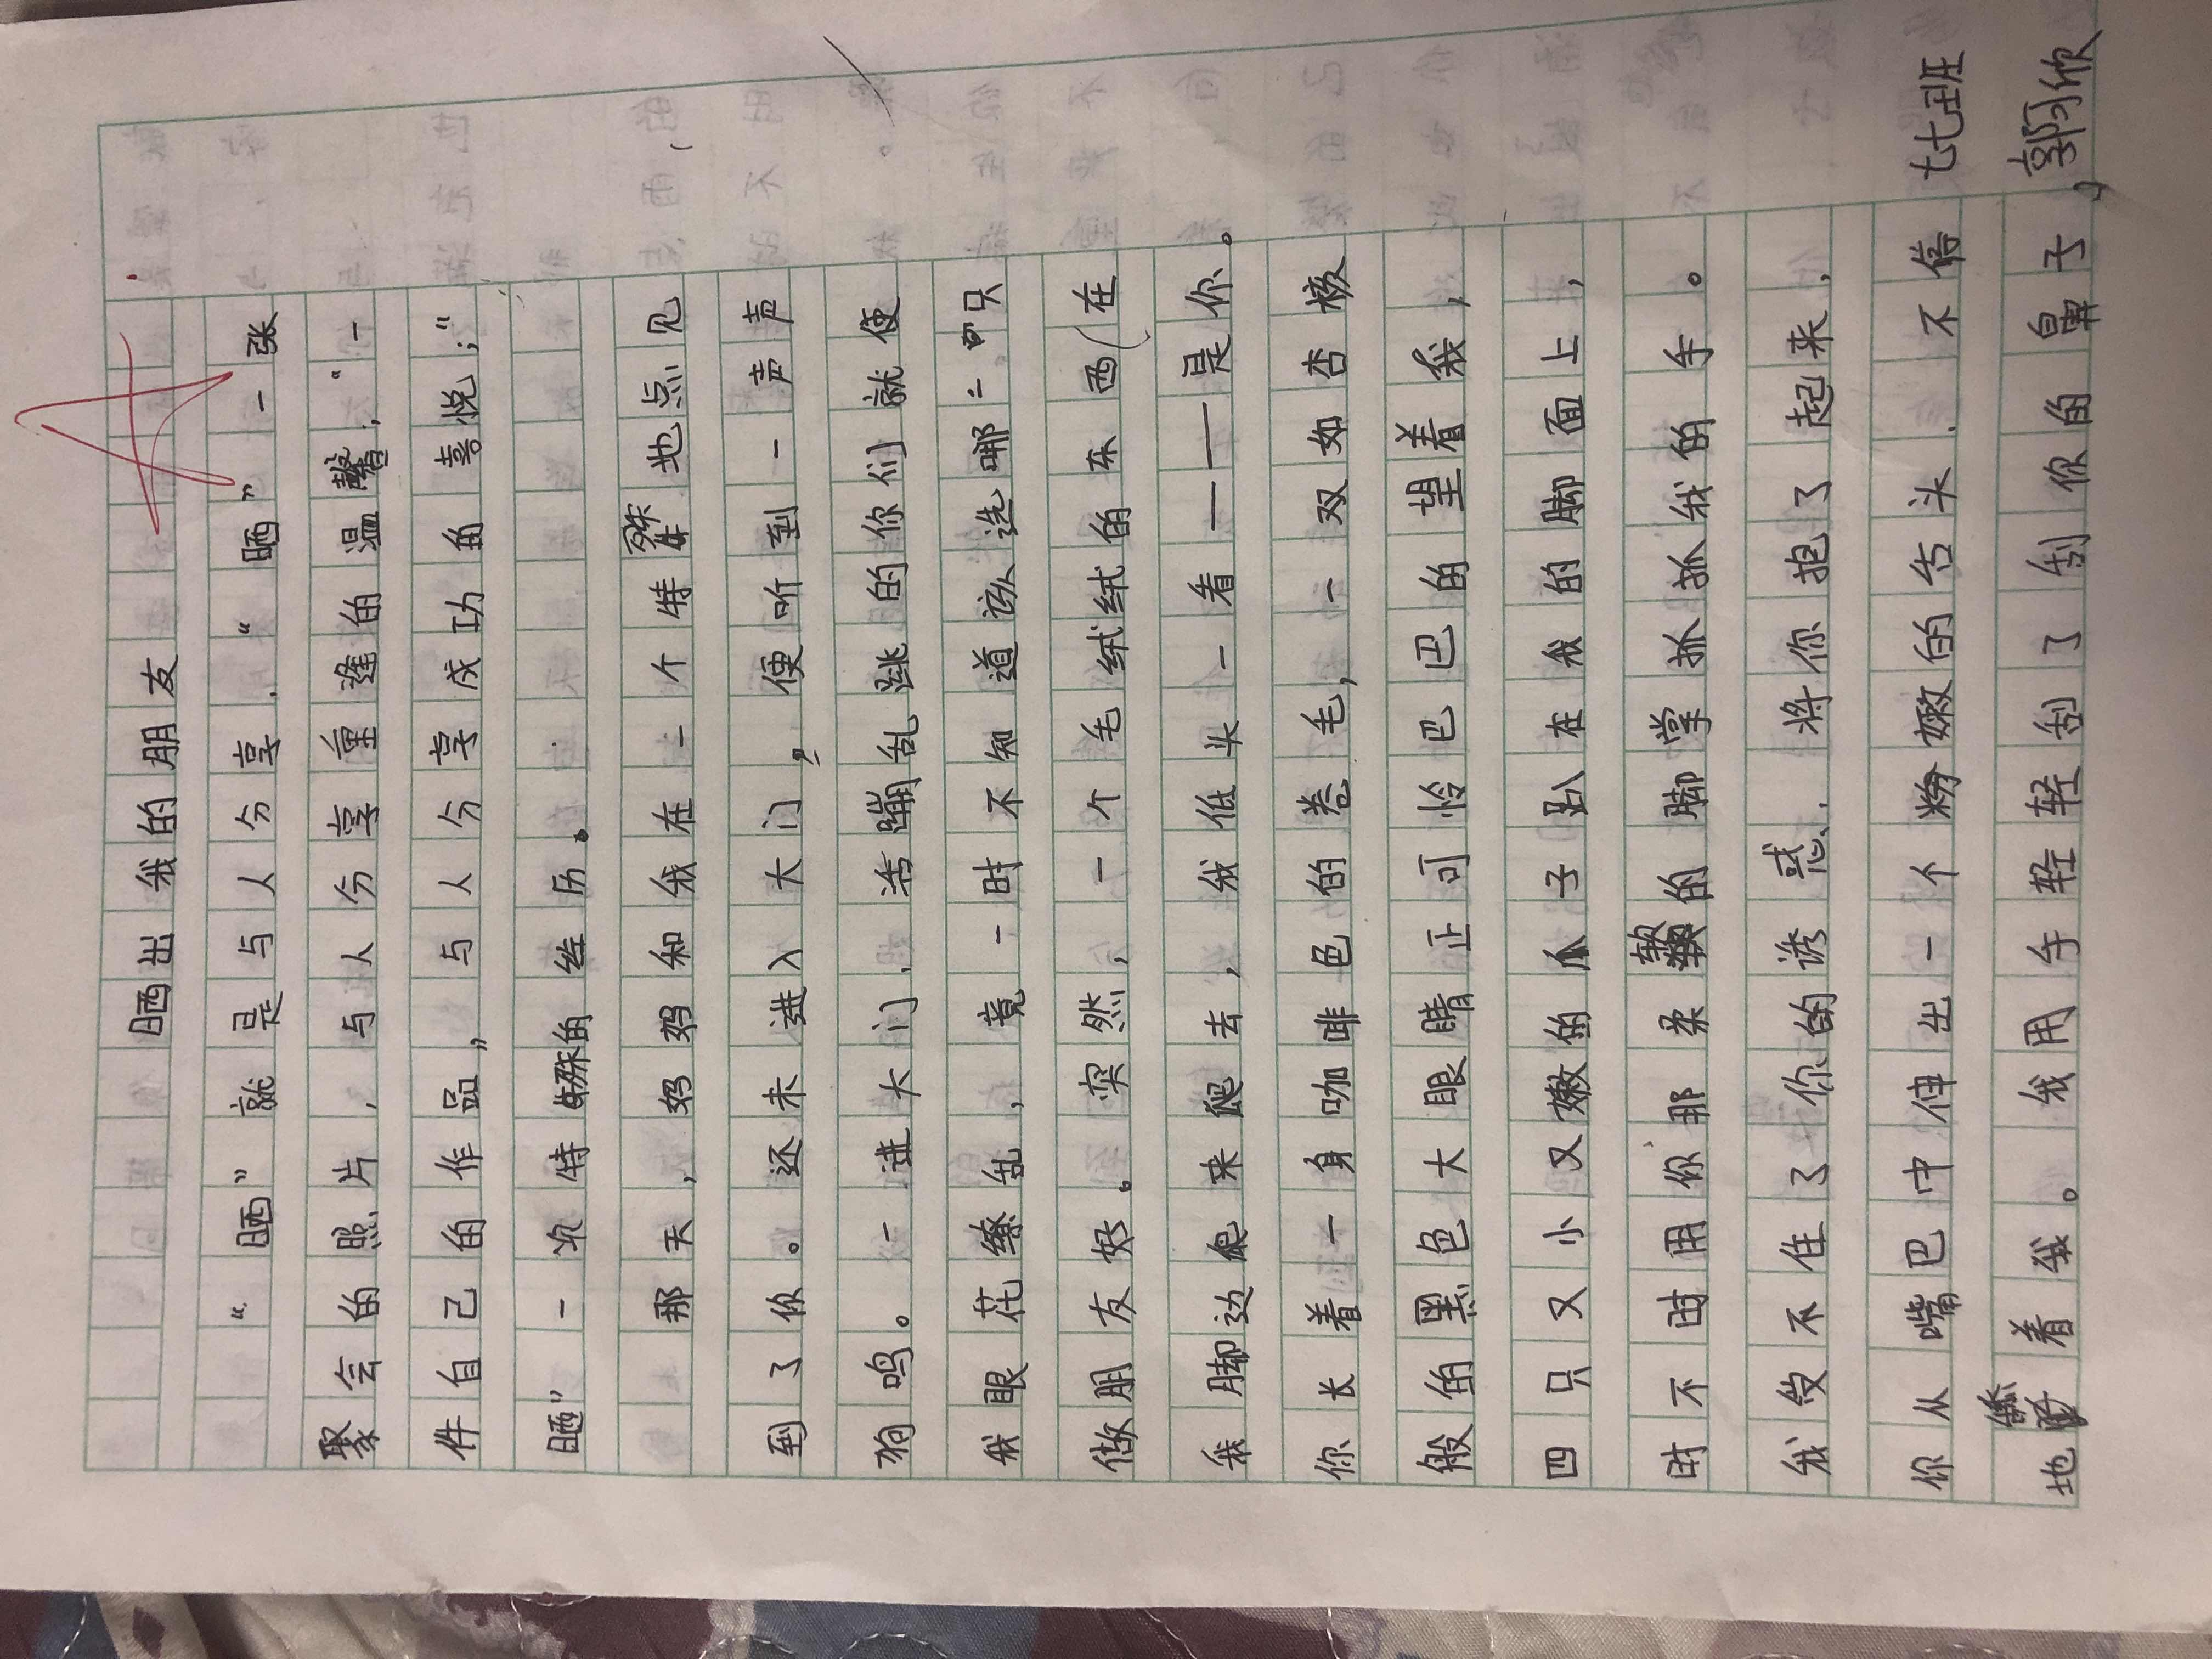 晒出我的朋友
“晒”就是与人分享.“晒”一张
聚会的照片,与人分享重逢的温馨;“一
件自己的作品”,与人分享成功的喜悦;“
晒”一次特殊的经历。
那天,妈妈和我在一个特殊地点见
到了你。还未进入大门,便听到一声声
狗鸣。一进大门,活蹦乱跳的你们就使
我眼花缭乱,竟一时不知道该选哪一只
做朋友好。突然,一个毛绒绒的东西(在
我脚边爬来爬去,我低头一看——是你。
你长着一身咖啡色的卷毛,一双如杏核
般的黑色大眼睛正可怜巴巴的望着我,
四只又小又嫩的爪子趴在我的脚面上,
时不时用你那柔软的脚掌抓抓我的手。
我受不住了你的诱惑,将你抱了起来,
你从嘴巴中伸出一个粉嫩的舌头,不停
地舔着我。我用手轻轻刮了刮你的鼻子,
七七班
郭欣